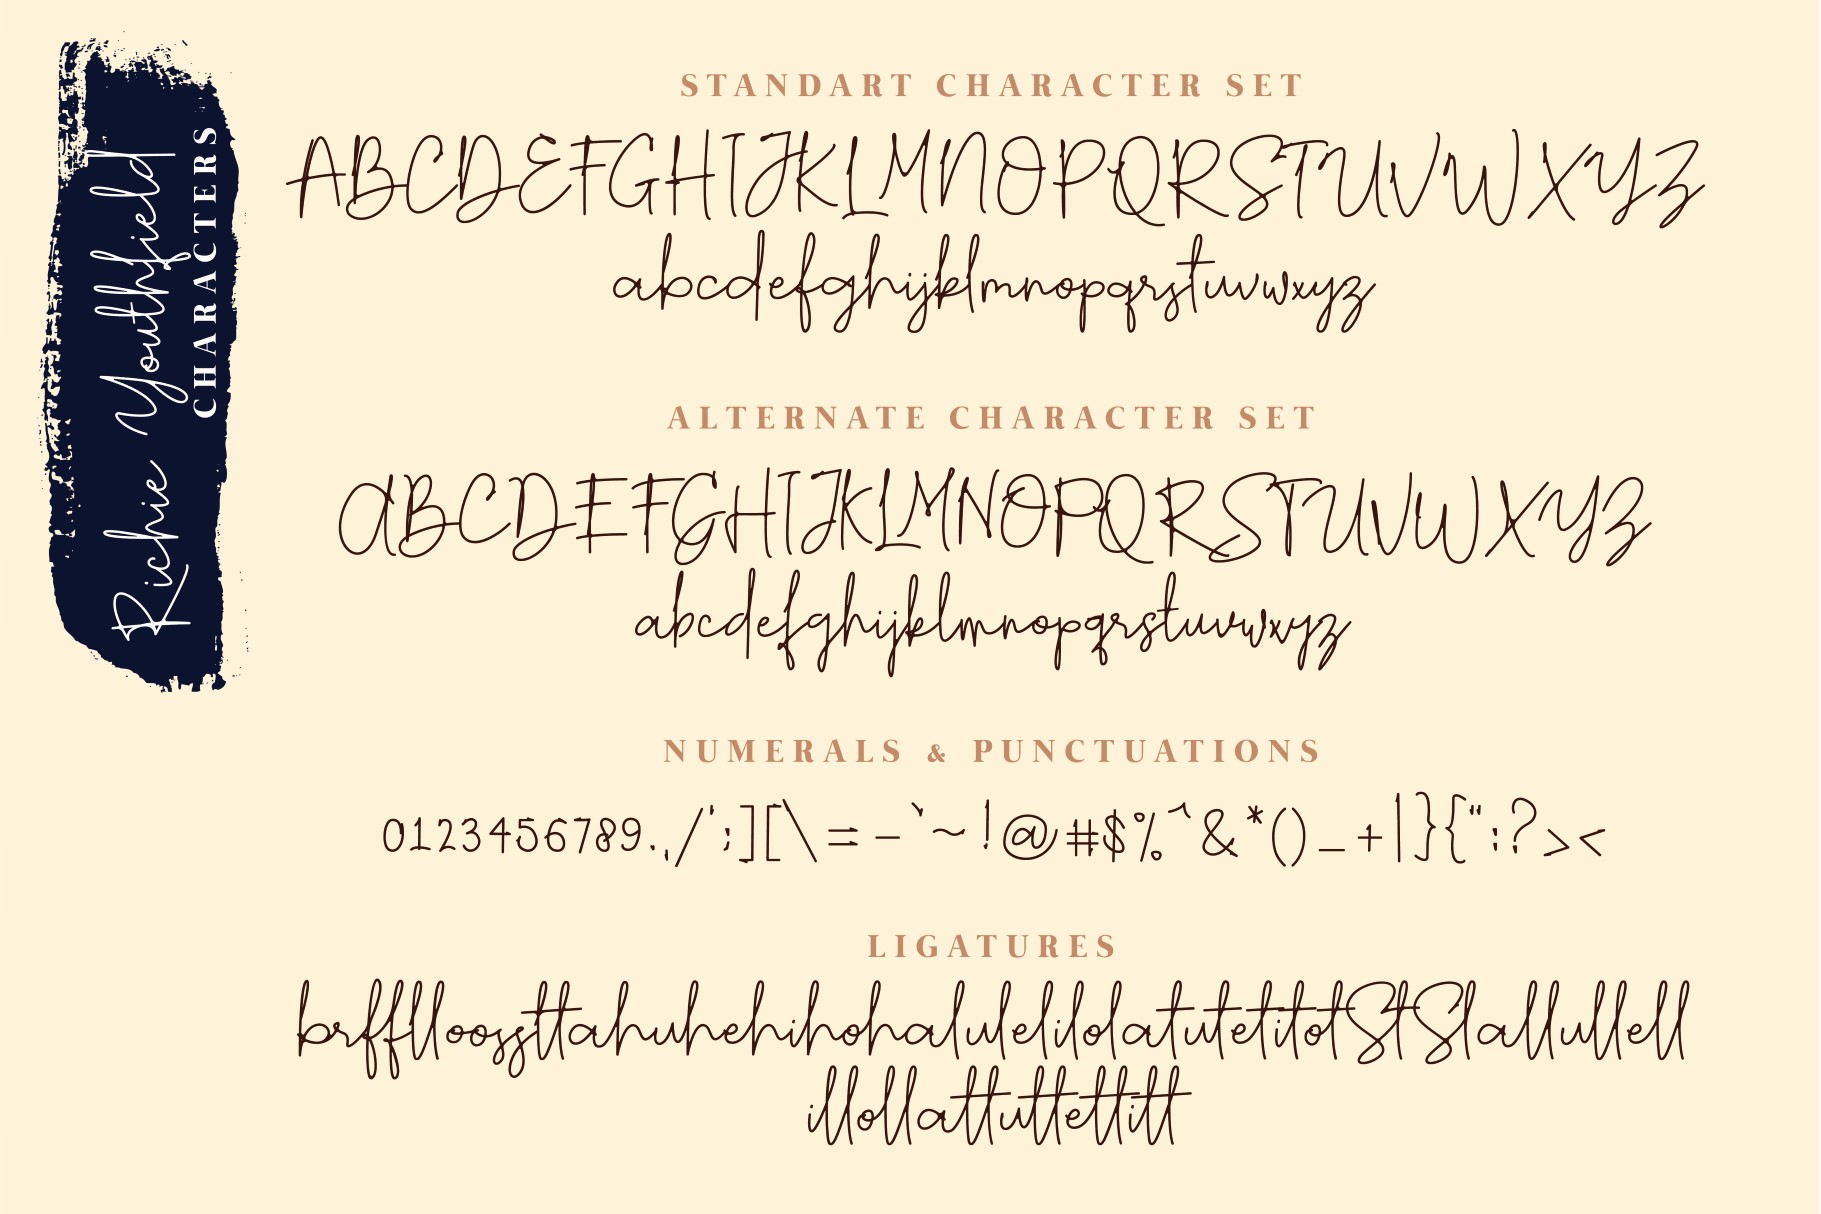 Richie Youthfield
CHARACTERS
STANDART CHARACTER SET
ABCDEFGHIJKLMNOPQRSTUVWXYZ
abcdefghijklmnopqrstuvwxyz
ALTERNATE CHARACTER SET
ABCDEFGHIJKLMNOPQRSTUVWXYZ
abcdefghijklmnopqrstuvwxyz
NUMERALS & PUNCTUATIONS
0123456789.,/';][\=-`~!@#$%^&*()_+|}{":?><
LIGATURES
brfflloossttahuhehihohalulelilolatutetitotStSlallullell
illollattuttettitt